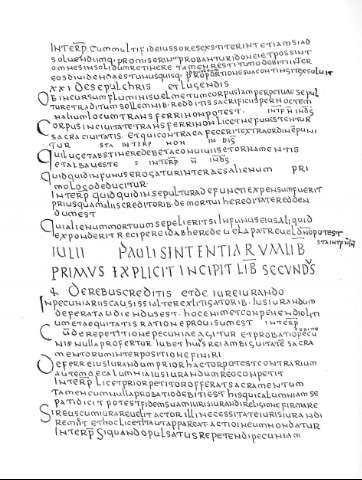 INTERP CUMMULTIFIDEIUSSORESEXSTITERINTETIAMSIAD
SOLVENDUM PROMISERINT PROBANTUR IDONEIETPOSSINT
OMNESINSOLIDUMRETINERE TAMEN
EOSDIVIDENDAESTUNUSQUISQ PROPORTIONE
XXI DESEPULCHRIS ETLUGENDIS
OBINCURSUMFLUMINISUELMETUMCORPUSIAMPERPETUAESEPUL
TURETRADITUMSOLLEMNIBREDDITISSACRIFICIISPERNOCTEM
INALIUMLOCUMTRANSFERRINONPOTEST INTP N INDS
CORPUSINCIUITATETRANSFERRINONLICETNEFUNESTENTUR
SACRACIUITATIS ETQUICONTRAEAFECERITEXTRAORDINEPUNI
TUR STA INTERP NON IN DIS
QUILUGETABSTINEREDEBETACONUIUIISETORNAMENTIS
ETALBAUESTE INTERP N INDS
QUIDQUIDINFUNUSEROGATURINTERAESALIENUM PRI
MOLOCODEDUCITUR
INTERP QUIDQUIDINSEPULTURADEFUNCTIEXPENSUMFUERIT
PRIUSQUAMULLISCREDITORIBDEMORTUIHEREDITATEREDDEN
DUMEST
QUIALIENUMMORTUUMSEPELIERITSIINFUNUSEIUSALIQUID
EXPENDERITRECIPEREIDABHEREDEUELAPATREUEL
STAINTPN
IULII PAULISINTENTIARUMLIB
PRIMUS EXPLICITINCIPITLIB SECUNDS
DEREBUSCREDITIS ETDEIUREIURANDO
INPECUNIARIISCAUSISSIALTEREXLITIGATORIBIUSIURANDUM
DEFERATAUDIENDUSEST HOCENIMETCOMPENDIOLITI
UMETAEQUITATISRATIONEPROUISUMEST INTERP
CUDEREPETITIONEPECUNIAEAGITUR ETPROBATIO
NISNULLAPROFERTUR IUBETHUISREIAMBIGUITATESACRA
MENTORUMINTERPOSITIONEFINIRI
DEFERREIUSIURANDUMPRIORHACTORPOTESTCONTRARIUM
AUTEMDECALUMNIAIUSIURANDUMREOCOMPETIT
INTERP LICETPRIORPETITOROFFERATSACRAMENTUM
TAMENCUMNULLAPROBATIODEBITIESTHISQUICALUMNIAMSE
PATIDICIT POTESTFIDEMSUAMIURISIURANDIRELIGIONEFIRMARE
SIREUSCUMIURAREUELITACTORILLINECESSITATEIURISIURANDI
REMIST ETHOCLIQUIDAPPAREATACTIOINEUMNONDATUR
INTERP SIQUANDOPULSATUSREPETENDIPECUNIAM